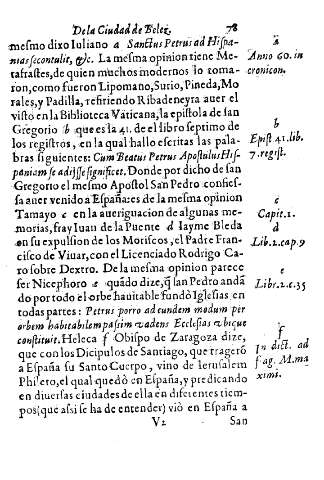 De la Ciudad de Belez. 78
mesmo dixo Iuliano a Sanctus Petrus ad Hispa-
nias se contulit, &c. La mesma opinion tiene Me-
tafrastes, de quien muchos modernos lo toma-
ron, como fueron Lipomano, Surio, Pineda, Mo
rales, y Padilla, refiriendo Ribadeneyra auer el
visto en la Biblioteca Vaticana, la epistola de san
Gregorio b que es la 41. de el libro septimo de
los registros, en la qual hallo escritas las pala
bras siguientes: Cum Beatus Petrus Apostulus His-
paniam se adijsse significet. Donde por dicho de san
Gregorio el mesmo Apostol San Pedro confies-
sa auer venido a España: es de la mesma opinion
Tamayo c en la aueriguacion de algunas me-
morias, fray Iuan de la Puente d Iayme Bleda
en su expulsion de los Moriscos, el Padre Fran-
cisco de Viuar, con el Licenciado Rodrigo Ca-
ro sobre Dextro. De la mesma opinion parece
ser Nicephoro e quãdo dize, q̃ san Pedro andã
do por todo el orbe hauitable fundò Iglesias en
todas partes: Petrus porro ad eundem modum per
orbem habitabilem passim vadens Ecclesias vbique
constituit. Heleca f Obispo de Zaragoza dize,
que con los Dicipulos de Santiago, que trageró
a España su Santo Cuerpo, vino de Ierusalem
Philero, el qual quedò en España, y predicando
en diuersas ciudades de ella en diferentes tiem-
pos (que assi se ha de entender) viò en España a
V2 San
a
Anno 60. in
cronicon.
b
Epist 41. lib.
7. regist.
c
Capit. 1.
d
Lib. 2. cap. 9
e
Libr. 2. c. 35
f
In dict. ad
frag. M. ma
ximi.